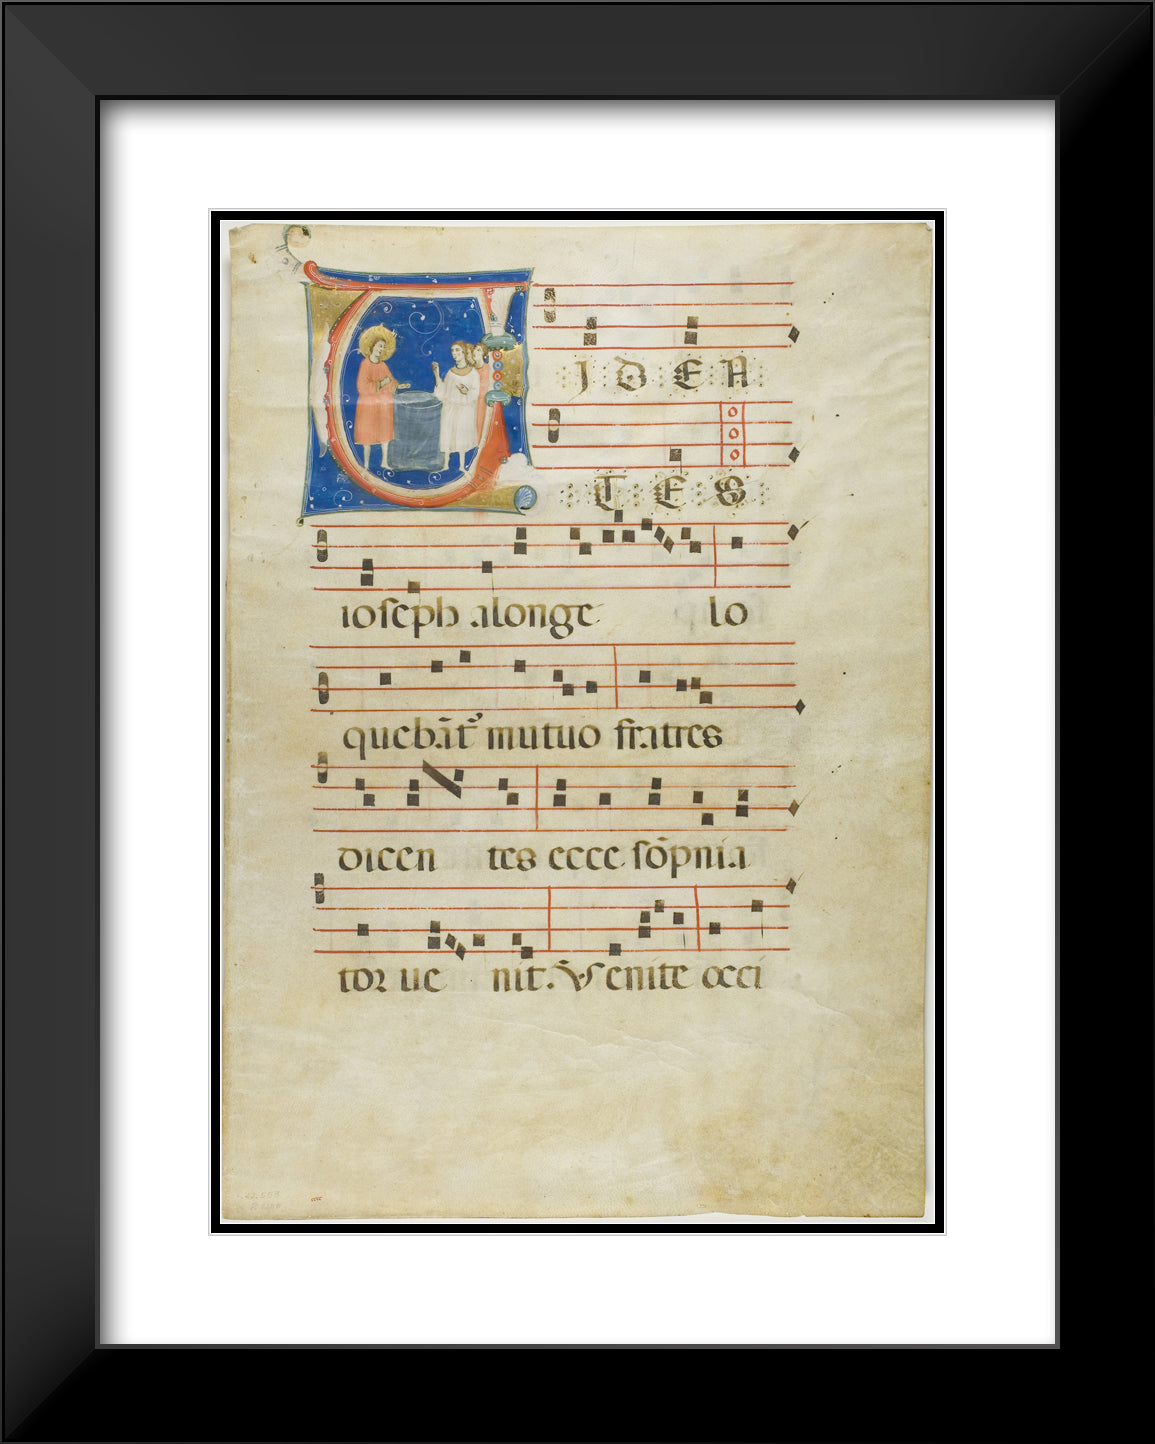 VIDEN
TES
ioseph alonge lo
quebãt᷑ mutuo fratres
dicen tes ecce so̅pnia
tor ue nit. V̅ enite occi